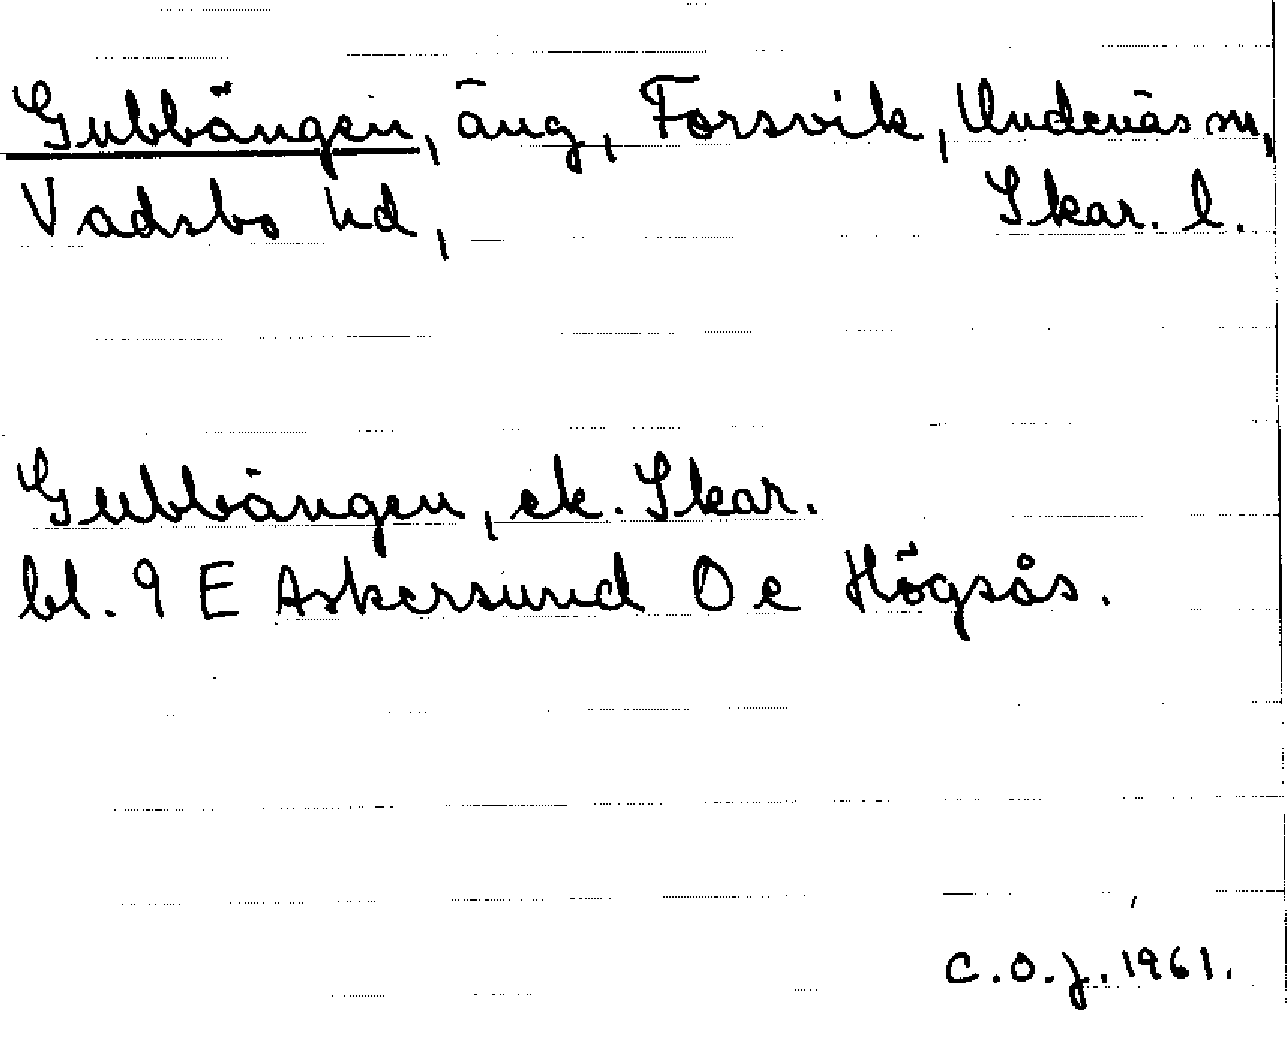 Gubbängen, äng, Forsvik, Undenäs sn,
Vadsbo hd, Skar. l.
Gubbängen, ek. Skar.
bl. 9 E Askersund 0 e Högsås.
C.O.J. 1961.